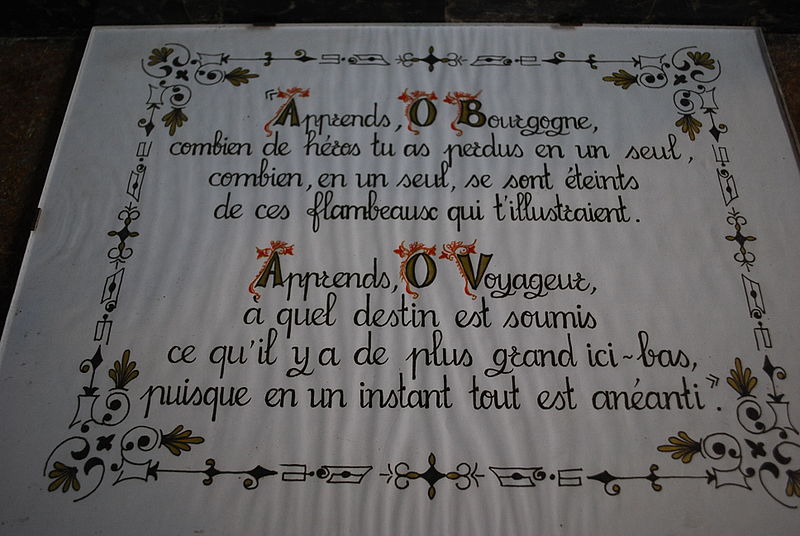 « Apprends, O Bourgogne,
combien de héros tu as perdus en un seul,
combien, en un seul, se sont éteints
de ces flambeaux qui t'illustraient.
Apprends, O Voyageur,
à quel destin est soumis
ce qu'il y a de plus grand ici-bas,
puisque en un instant tout est anéanti ».